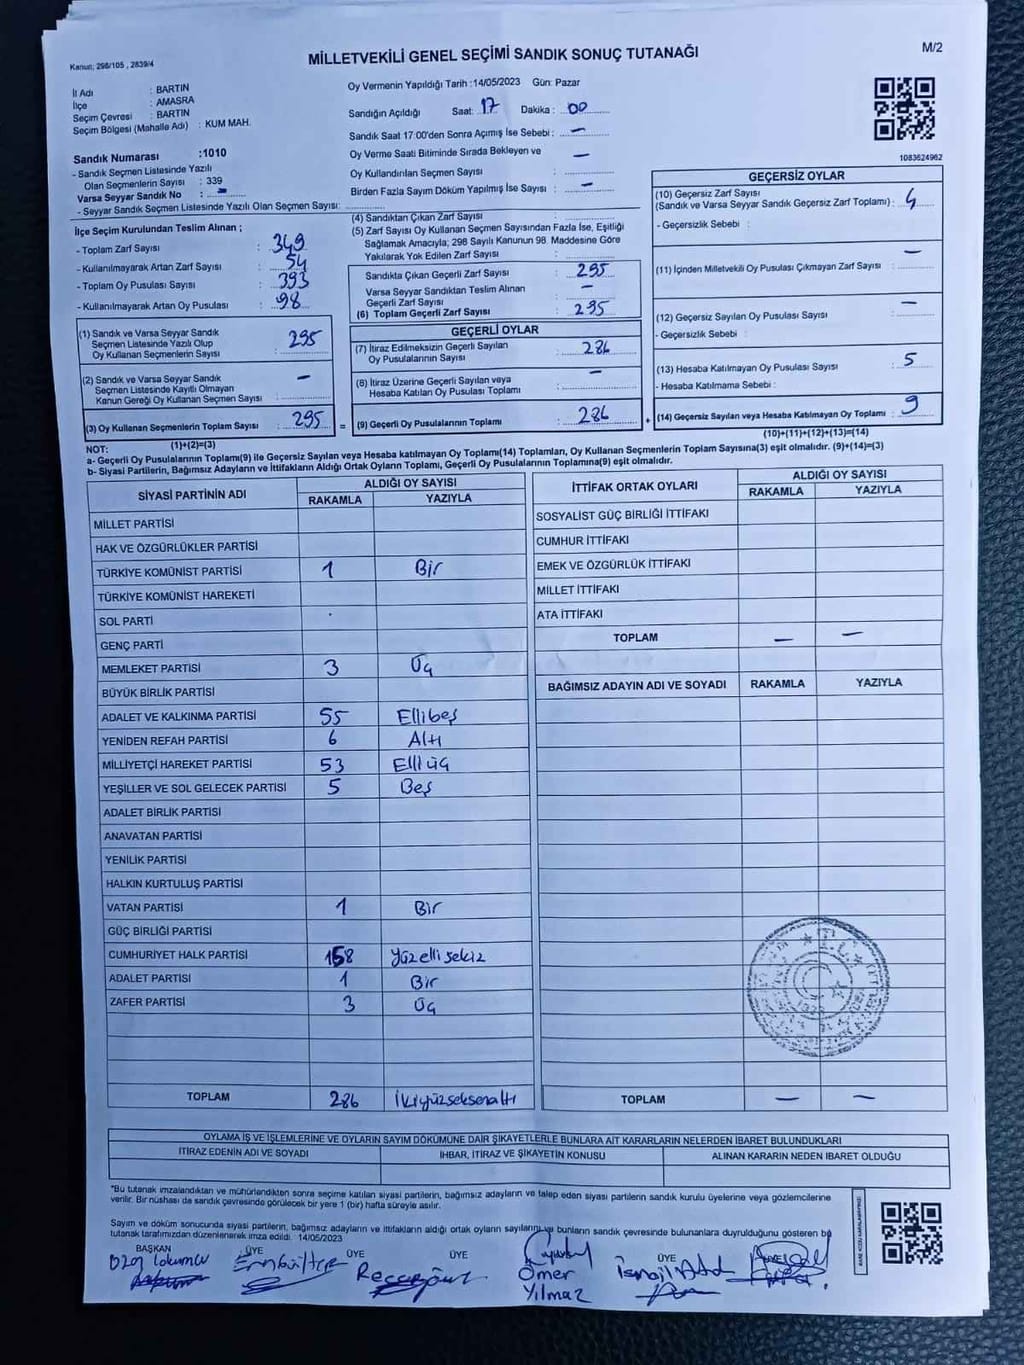 MİLLETVEKİLİ GENEL SEÇİMİ SANDIK SONUÇ TUTANAĞI
M/2
Kanun: 298/105 , 2839/4
İl Adı : BARTIN
İlçe : AMASRA
Seçim Çevresi : BARTIN
Seçim Bölgesi (Mahalle Adı) : KUM MAH.
Sandık Numarası :1010
- Sandık Seçmen Listesinde Yazılı
Olan Seçmenlerin Sayısı : 339
Varsa Seyyar Sandık No : -
- Seyyar Sandık Seçmen Listesinde Yazılı Olan Seçmen Sayısı:
Oy Vermenin Yapıldığı Tarih :14/05/2023 Gün: Pazar
Sandığın Açıldığı Saat: 17 Dakika : 00
Sandık Saat 17:00'den Sonra Açımış İse Sebebi : -
Oy Verme Saati Bitiminde Sırada Bekleyen ve -
Oy Kullandırılan Seçmen Sayısı :
Birden Fazla Sayım Döküm Yapılmış İse Sayısı : -
1083624962
İlçe Seçim Kurulundan Teslim Alınan ;
- Toplam Zarf Sayısı : 349
- Kullanılmayarak Artan Zarf Sayısı : 54
- Toplam Oy Pusulası Sayısı : 393
- Kullanılmayarak Artan Oy Pusulası : 98
(1) Sandık ve Varsa Seyyar Sandık
Seçmen Listesinde Yazılı Olup
Oy Kullanan Seçmenlerin Sayısı : 295
(2) Sandık ve Varsa Seyyar Sandık
Seçmen Listesinde Kayıtlı Olmayan
Kanun Gereği Oy Kullanan Seçmen Sayısı : -
(3) Oy Kullanan Seçmenlerin Toplam Sayısı : 295
(1)+(2)=(3)
(4) Sandıktan Çıkan Zarf Sayısı :
(5) Zarf Sayısı Oy Kullanan Seçmen Sayısından Fazla İse, Eşitliği
Sağlamak Amacıyla; 298 Sayılı Kanunun 98. Maddesine Göre
Yakılarak Yok Edilen Zarf Sayısı :
Sandıkta Çıkan Geçerli Zarf Sayısı : 295
Varsa Seyyar Sandıktan Teslim Alınan
Geçerli Zarf Sayısı : -
(6) Toplam Geçerli Zarf Sayısı : 295
GEÇERLİ OYLAR
(7) İtiraz Edilmeksizin Geçerli Sayılan
Oy Pusulalarının Sayısı : 286
(8) İtiraz Üzerine Geçerli Sayılan veya
Hesaba Katılan Oy Pusulası Toplamı : -
= (9) Geçerli Oy Pusulalarının Toplamı : 286 +
GEÇERSİZ OYLAR
(10) Geçersiz Zarf Sayısı
(Sandık ve Varsa Seyyar Sandık Geçersiz Zarf Toplamı) : 4
- Geçersizlik Sebebi :
(11) İçinden Milletvekili Oy Pusulası Çıkmayan Zarf Sayısı : -
(12) Geçersiz Sayılan Oy Pusulası Sayısı : -
- Geçersizlik Sebebi :
(13) Hesaba Katılmayan Oy Pusulası Sayısı : 5
- Hesaba Katılmama Sebebi :
(14) Geçersiz Sayılan veya Hesaba Katılmayan Oy Toplamı : 9
(10)+(11)+(12)+(13)=(14)
NOT:
a- Geçerli Oy Pusulalarının Toplamı(9) ile Geçersiz Sayılan veya Hesaba katılmayan Oy Toplamı(14) Toplamları, Oy Kullanan Seçmenlerin Toplam Sayısına(3) eşit olmalıdır. (9)+(14)=(3)
b- Siyasi Partilerin, Bağımsız Adayların ve İttifakların Aldığı Ortak Oyların Toplamı, Geçerli Oy Pusulalarının Toplamına(9) eşit olmalıdır.
SİYASİ PARTİNİN ADI ALDIĞI OY SAYISI
RAKAMLA YAZIYLA
MİLLET PARTİSİ
HAK VE ÖZGÜRLÜKLER PARTİSİ
TÜRKİYE KOMÜNİST PARTİSİ 1 Bir
TÜRKİYE KOMÜNİST HAREKETİ
SOL PARTİ
GENÇ PARTİ
MEMLEKET PARTİSİ 3 Üç
BÜYÜK BİRLİK PARTİSİ
ADALET VE KALKINMA PARTİSİ 55 Ellibeş
YENİDEN REFAH PARTİSİ 6 Altı
MİLLİYETÇİ HAREKET PARTİSİ 53 Elliüç
YEŞİLLER VE SOL GELECEK PARTİSİ 5 Beş
ADALET BİRLİK PARTİSİ
ANAVATAN PARTİSİ
YENİLİK PARTİSİ
HALKIN KURTULUŞ PARTİSİ
VATAN PARTİSİ 1 Bir
GÜÇ BİRLİĞİ PARTİSİ
CUMHURİYET HALK PARTİSİ 158 Yüzellisekiz
ADALET PARTİSİ 1 Bir
ZAFER PARTİSİ 3 Üç
TOPLAM 286 İkiyüzseksenaltı
İTTİFAK ORTAK OYLARI ALDIĞI OY SAYISI
RAKAMLA YAZIYLA
SOSYALİST GÜÇ BİRLİĞİ İTTİFAKI
CUMHUR İTTİFAKI
EMEK VE ÖZGÜRLÜK İTTİFAKI
MİLLET İTTİFAKI
ATA İTTİFAKI
TOPLAM - -
BAĞIMSIZ ADAYIN ADI VE SOYADI RAKAMLA YAZIYLA
T.C.
TOPLAM - -
OYLAMA İŞ VE İŞLEMLERİNE VE OYLARIN SAYIM DÖKÜMÜNE DAİR ŞİKAYETLERLE BUNLARA AİT KARARLARIN NELERDEN İBARET BULUNDUKLARI
İTİRAZ EDENİN ADI VE SOYADI İHBAR, İTİRAZ VE ŞİKAYETİN KONUSU ALINAN KARARIN NEDEN İBARET OLDUĞU
"Bu tutanak imzalandıktan ve mühürlendikten sonra seçime katılan siyasi partilerin, bağımsız adayların ve talep eden siyasi partilerin sandık kurulu üyelerine veya gözlemcilerine
verilir. Bir nüshası da sandık çevresinde görülecek bir yere 1 (bir) hafta süreyle asılır.
Sayım ve döküm sonucunda siyasi partilerin, bağımsız adayların ve ittifakların aldığı ortak oyların sayılarını ve bunların sandık çevresinde bulunanlara duyrulduğunu gösteren bu
tutanak tarafımızdan düzenlenerek imza edildi. 14/05/2023
BAŞKAN ÜYE ÜYE ÜYE ÜYE
Ömer
Yılmaz
İsmail